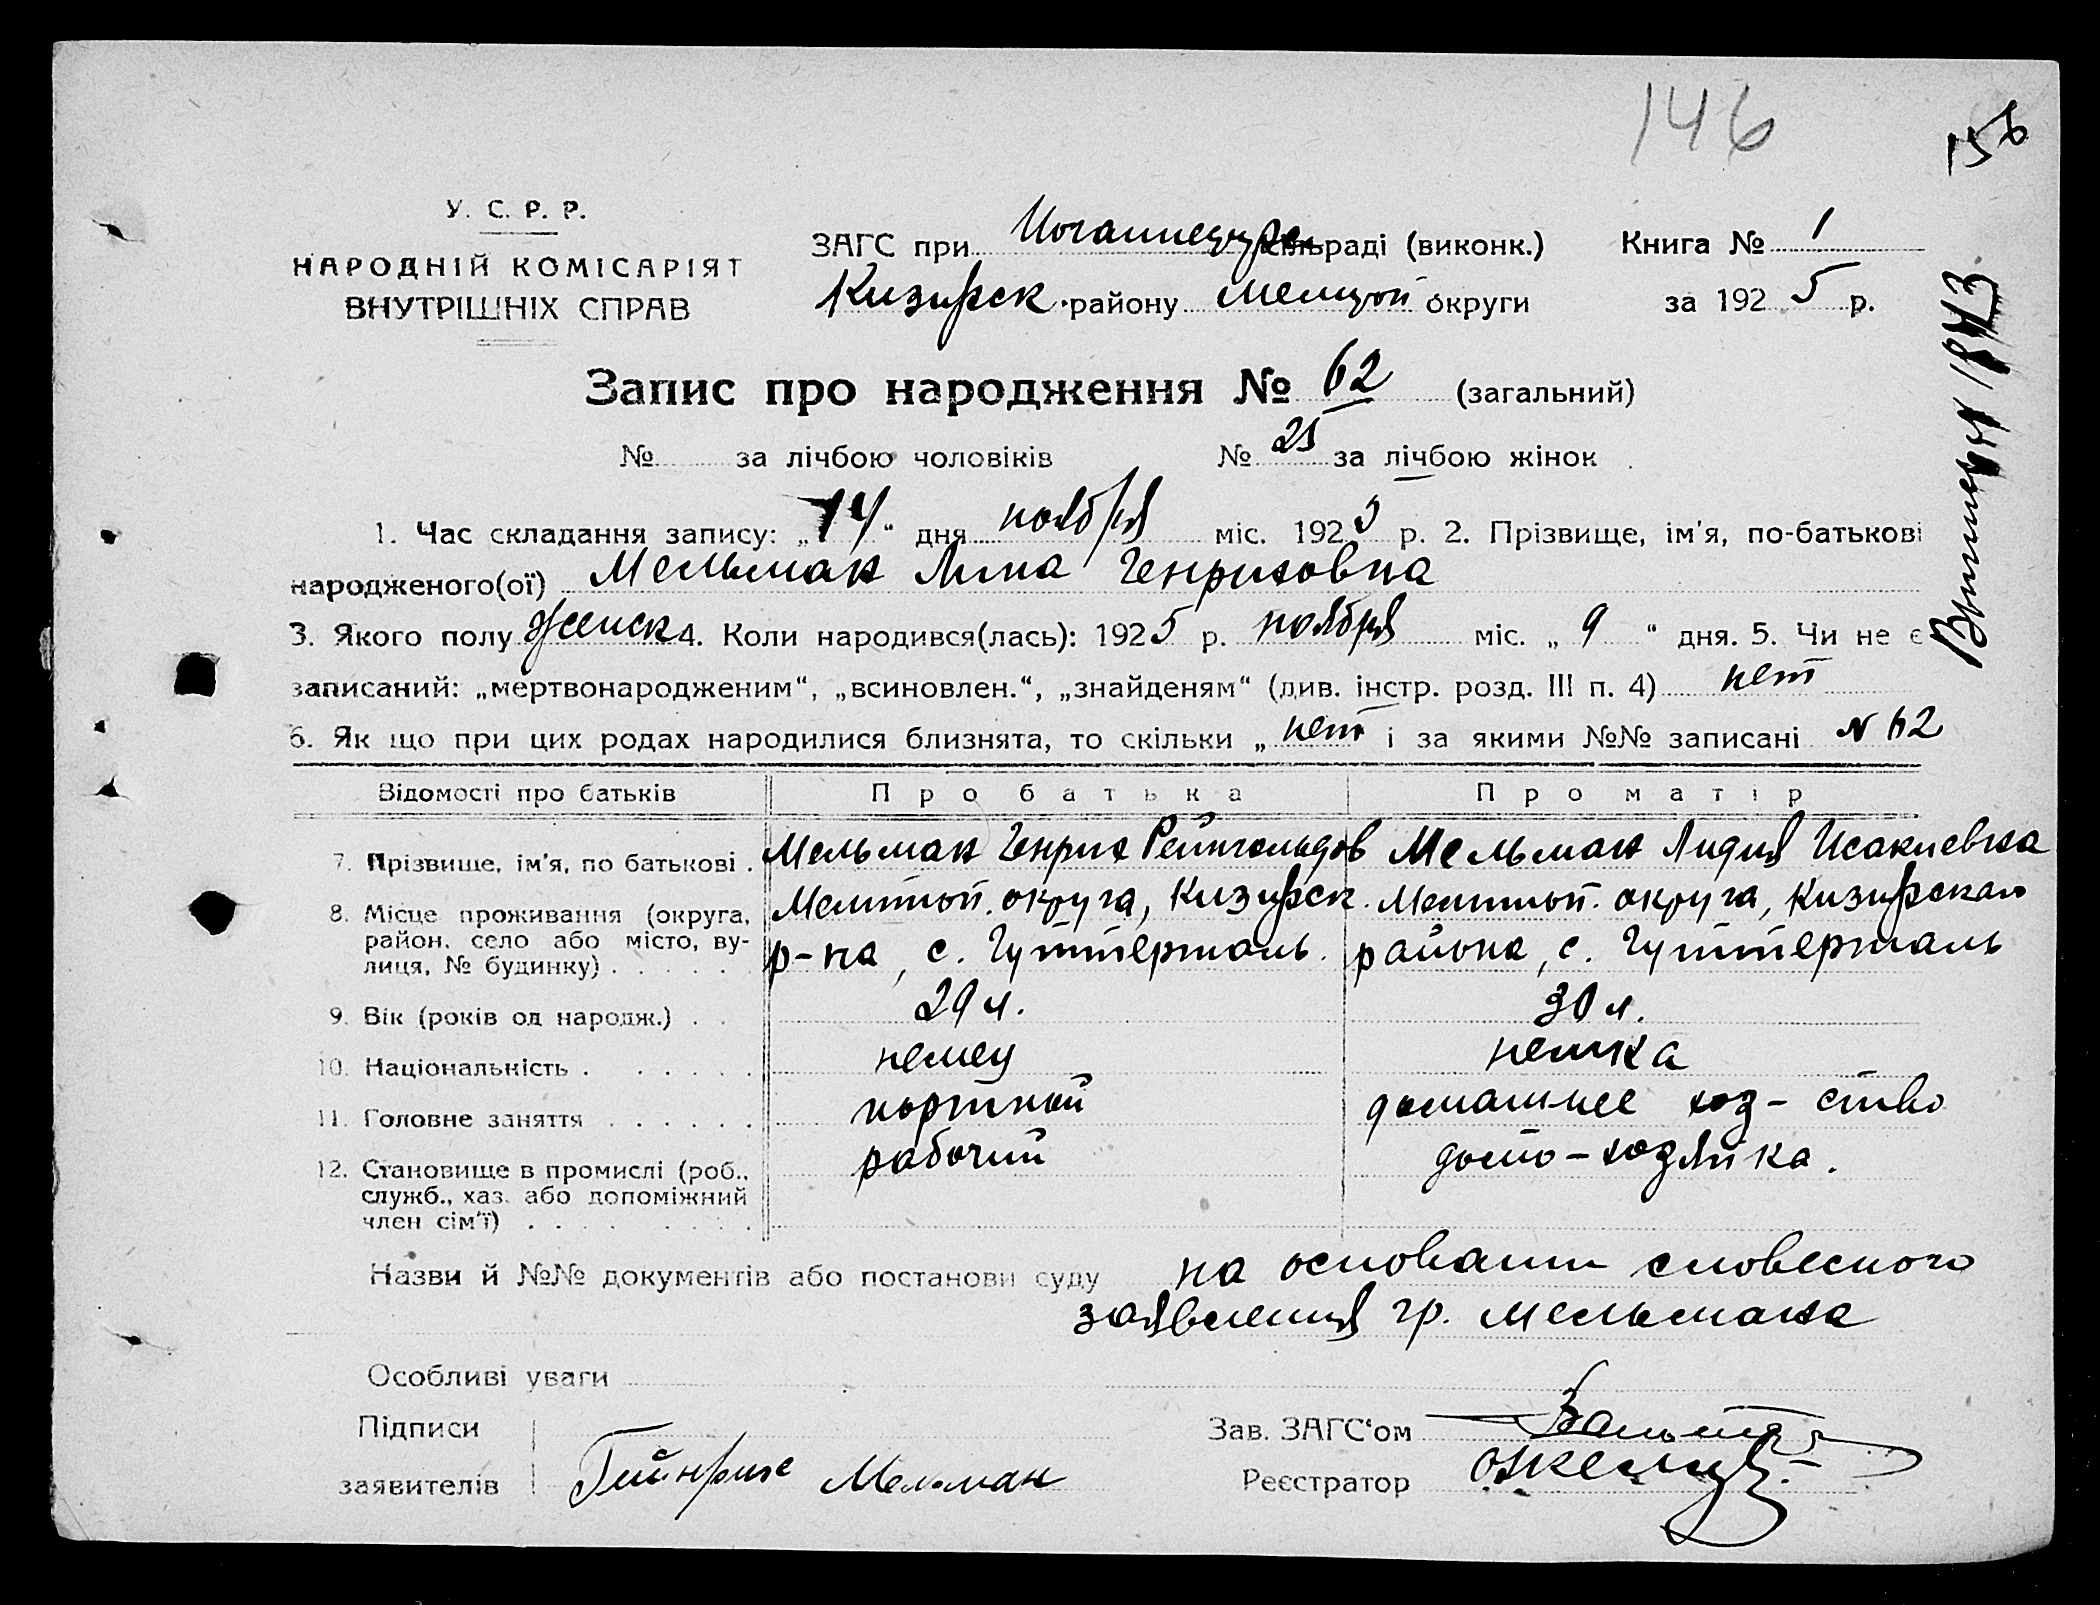 146
156
У. С. Р. Р.
НАРОДНІЙ КОМІСАРІЯТ
ВНУТРІШНІХ СПРАВ
ЗАГС при сільраді (виконк.) Книга № 1
Кизирск району Мелитоп округи за 1925 р.
Запис про народження № 62 (загальний)
№ за лічбою чоловіків № 25 за лічбою жінок
1. Час складання запису: „14“ дня ноября міс. 1925 р. 2. Прізвище, ім'я, по-батькові
народженого(ої) Мельман Лина Генриховна
3. Якого полу женск 4. Коли народився(лась): 1925 р. ноября міс. „9“ дня. 5. Чи не є
записаний: „мертвонародженим“, „всиновлен.“, „знайденям“ (див. інстр. розд. III п. 4) нет
6. Як що при цих родах народилися близнята, то скільки „нет і за якими №№ записані N 62
Відомості про батьків Про батька Про матір
7. Прізвище, ім'я, по батькові . Мельман Генрих Рейнгольдов Мельман Лидия Исакиевна
8. Місце проживання (округа, Мелитоп. округа, Кизирск. Мелитоп. округа, Кизирскаго
район, село або місто, ву- р-на, с. Гуттерталь. района, с. Гуттерталь
лиця, № будинку) . . . . . .
9. Вік (років од народж.) . . 29 л. 30 л.
10. Національність . . . . . . немец немка
11. Головне заняття . . . . . . портной домашнее хоз-ство
12. Становище в промислі (роб., рабочий домо-хозяйка.
служб., хаз. або допоміжний
член сім'ї) . . . . . . . .
Назви й №№ документів або постанови суду на основании словесного
заявления гр. Мельмана
Особливі уваги
Підписи Зав. ЗАГС'ом
заявителів Гейнрих Мельман Реєстратор